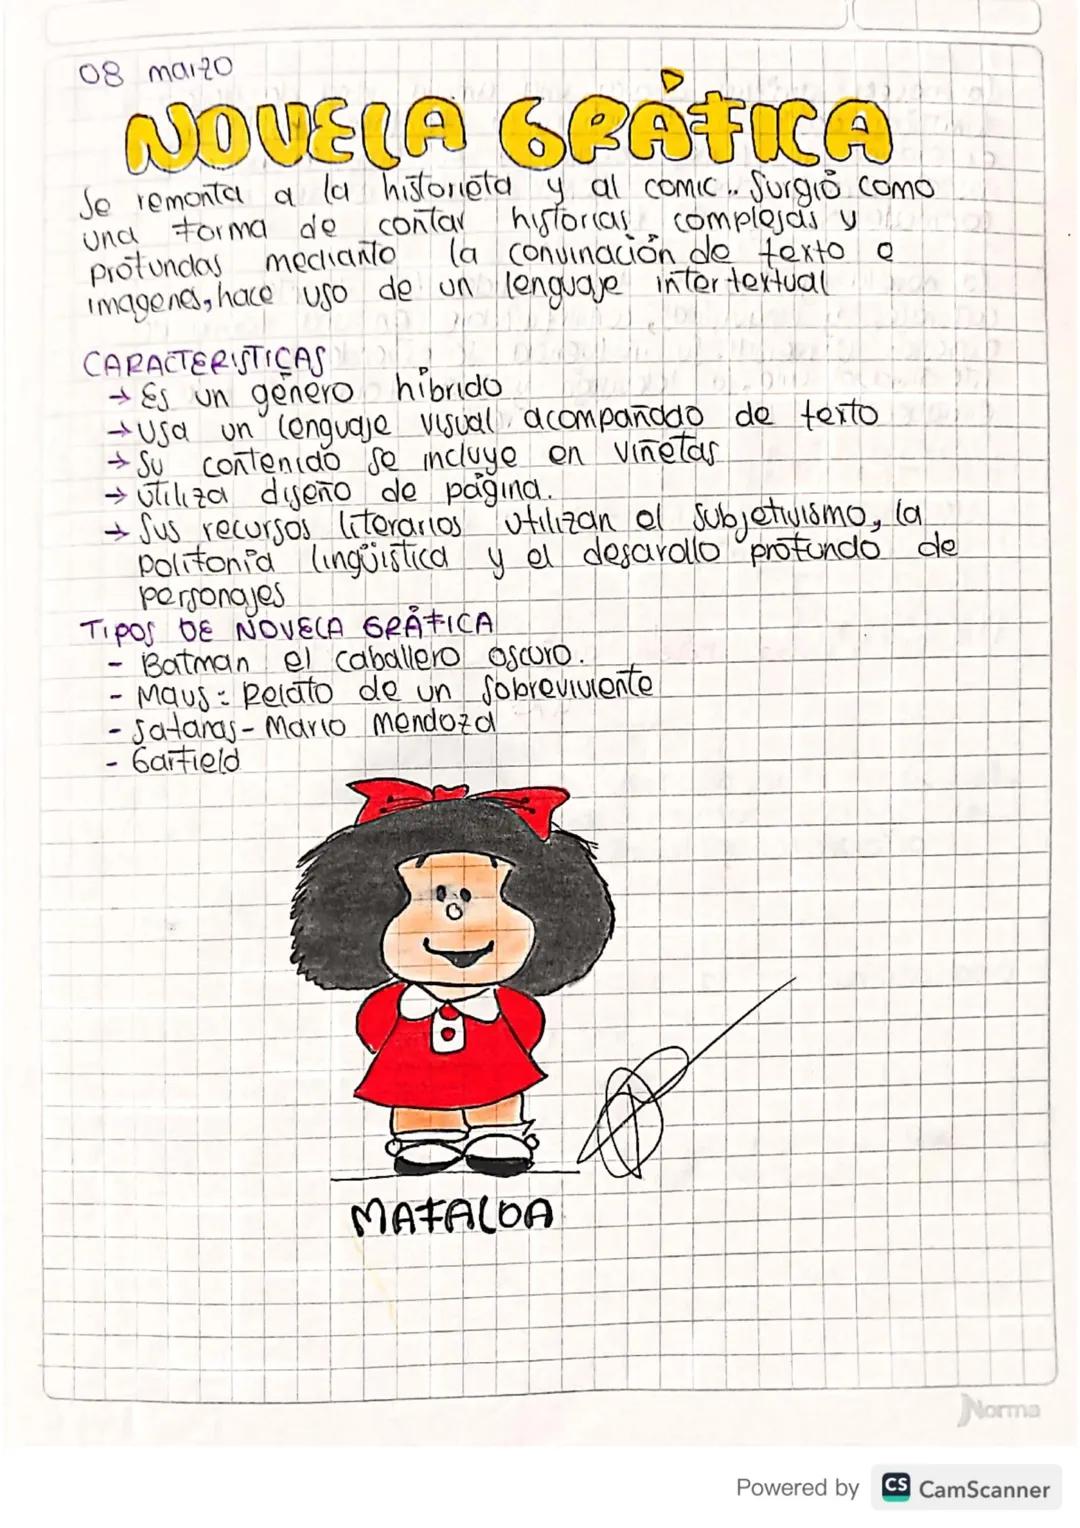 08 marzo
NOVELA GRÁFICA
Se remonta a la historieta y al comic.. Surgió como
una forma de contar historias complejas y
profundas mediante la convinación de texto e
imagenes, hace uso de un lenguaje intertextual
CARACTERISTICAS
→ Es un género híbrido
→ Usa un lenguaje visual acompañado de texto
→ Su contenido se incluye en viñetas
→ Utiliza diseño de página.
→ Sus recursos literarios utilizan el subjetivismo, la
polifonía lingüística y el desarollo profundo de
personajes
TIPOS DE NOVELA GRÁFICA
- Batman el caballero oscuro.
- Maus: Relato de un sobreviviente
- Satanas - Mario Mendoza
- Garfield
MAFALDA
Norma
Powered by CS CamScanner